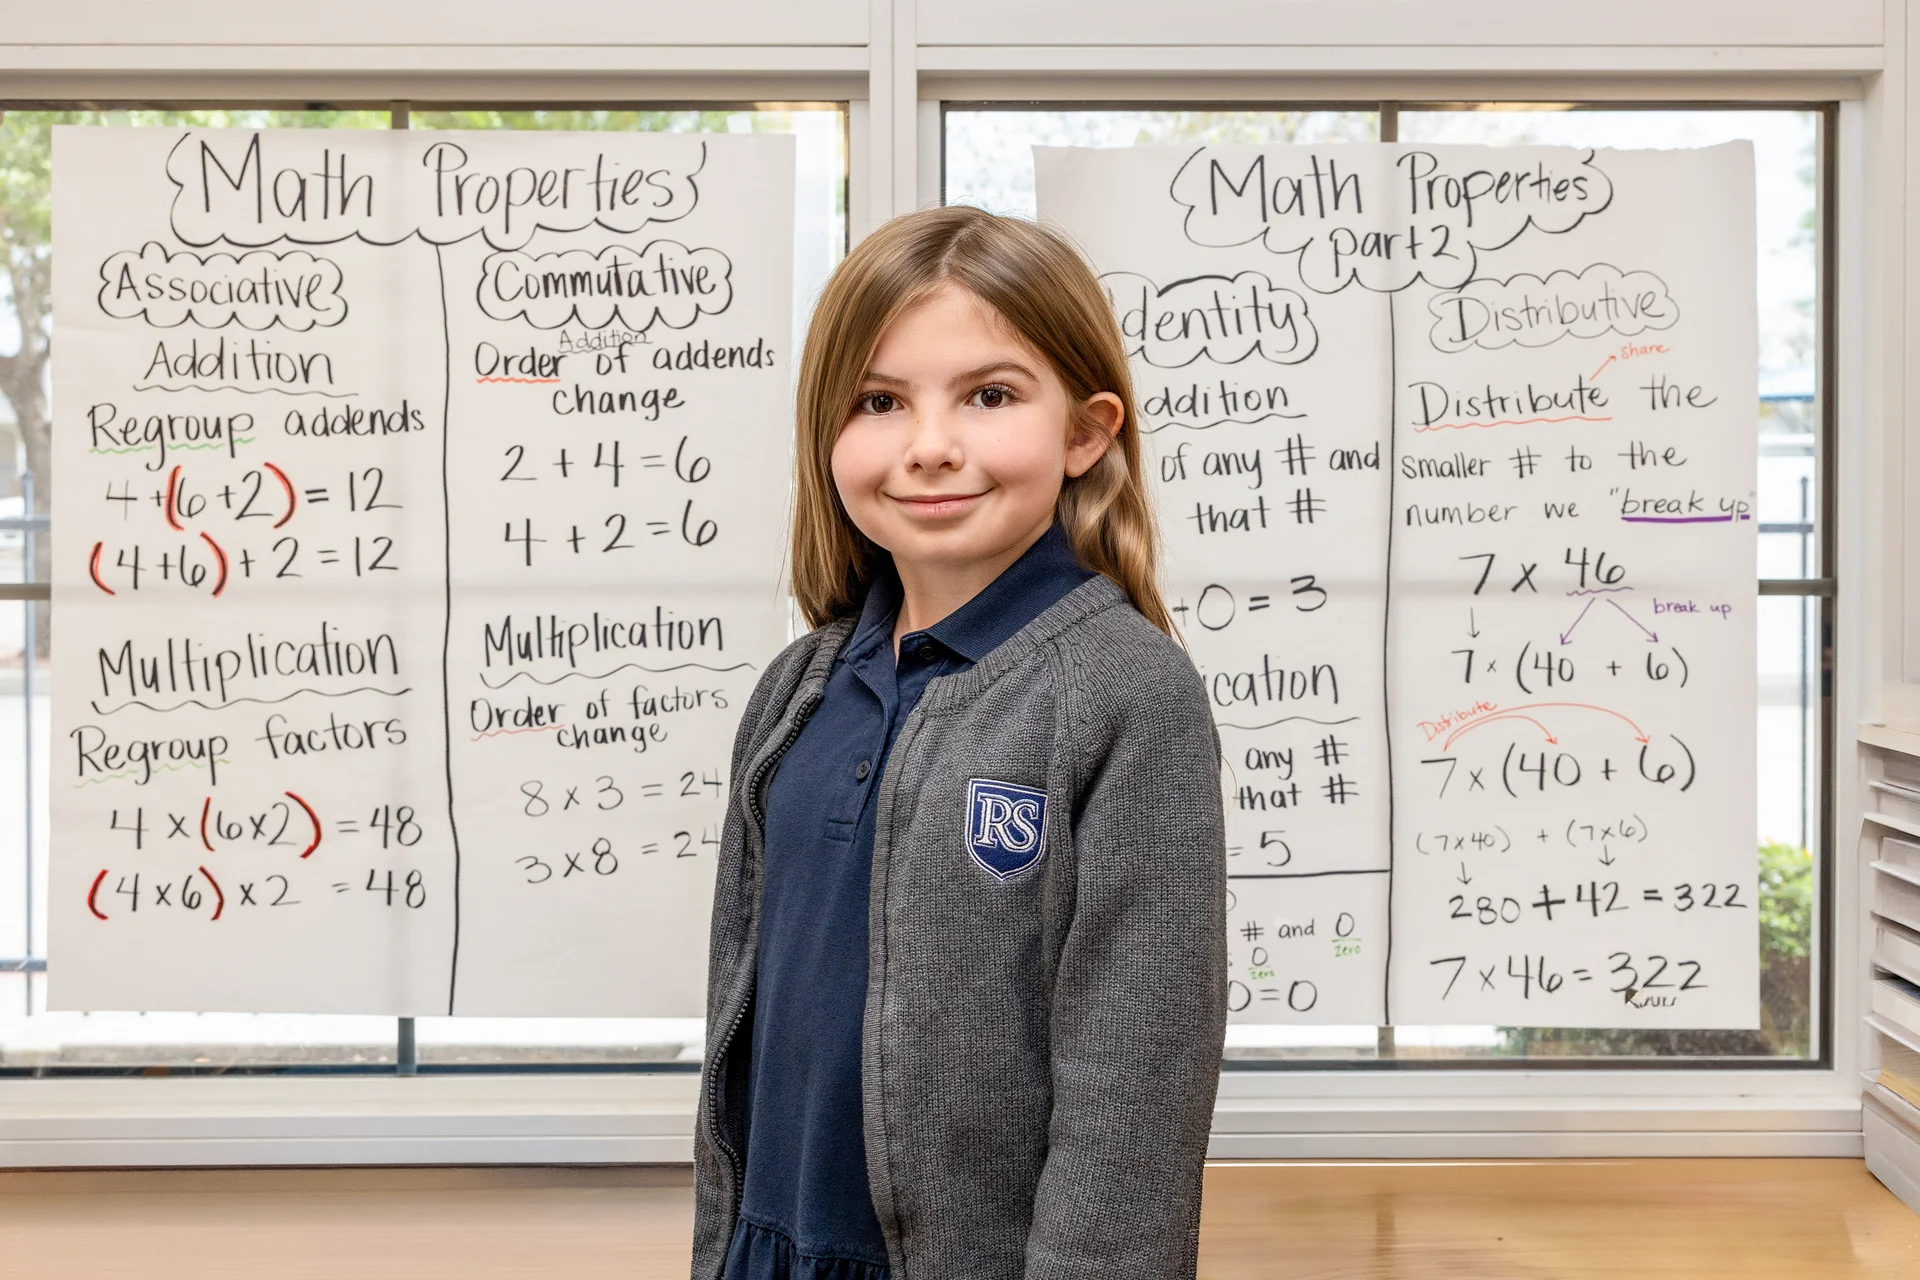 Math Properties
Associative
Addition
Regroup addends
4 + (6 + 2) = 12
(4 + 6) + 2 = 12
Multiplication
Regroup factors
4 × (6 × 2) = 48
(4 × 6) × 2 = 48
Commutative
Addition
Order of addends
change
2 + 4 = 6
4 + 2 = 6
Multiplication
Order of factors
change
8 × 3 = 24
3 × 8 = 24
RS
Math Properties
part 2
dentity
ddition
of any # and
that #
+0 = 3
ication
any #
that #
= 5
# and 0
zero
0
zero
0 = 0
Distributive
share
Distribute the
smaller # to the
number we "break up"
7 × 46
break up
7 × (40 + 6)
Distribute
7 × (40 + 6)
(7×40) + (7×6)
280 + 42 = 322
7 × 46 = 322